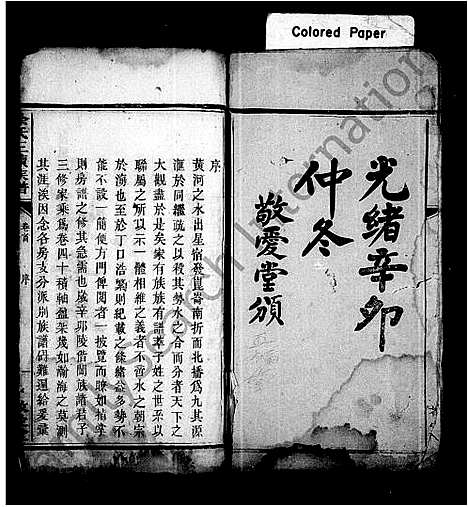 Colored Paper
光緒辛卯
仲冬
敬愛堂頒
序
黃河之水出星宿發崑崙南折而北播爲九其源
滙於同繼疏之以殺其勢水之合而分者天下之
大觀盡於是矣宋有族族有譜萃子姓之世系以
聯屬之所以示一體相維之義者不啻水之朝宗
於海也至於丁口浩繁則紀載之條緒益多勢不
能不設一簡便方門俾閱者一披覽而瞭如指掌
則房譜之修其急需也歲辛卯陵偕閤族諸君子
三修家乘爲卷四十積軸盈架幾如瀚海之莫測
其涯涘因念各房支分派別族譜碍難遍給爰彙
卷首
序